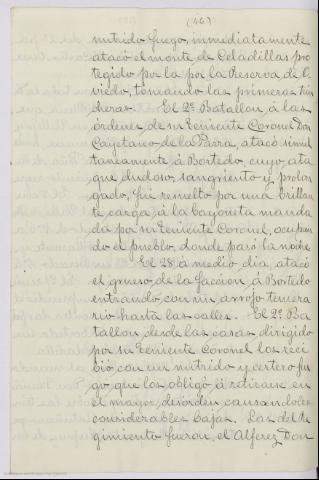 (46)
nutrido fuego, inmediatamente
atacó el monte de Celadillas pro
tegido por la por la Reserva de O
viedo, tomando las primeras trin
cheras. El 2º Batallon á las
órdenes de su Teniente Coronel Don
Cayetano de la Parra, atacó simul
taneamente á Bortedo, cuyo ata
que dudoso, sangriento y prolon
gado, fué resuelto por una brillan
te carga á la bayoneta manda
da por su Teniente Coronel, ocupan
do el pueblo, donde paró la noche
El 28 á medio dia, atacó
el grueso de la faccion á Bortedo
entrando con un arrojo temera
rio hasta las calles. El 2º Ba
tallon desde las casas dirigido
por su Teniente Coronel los reci
bió con un nutrido y certero fue
go, que los obligó á retirarse en
el mayor desórden causandoles
considerables bajas. Las del Re
gimiento fueron, el Alferez Don